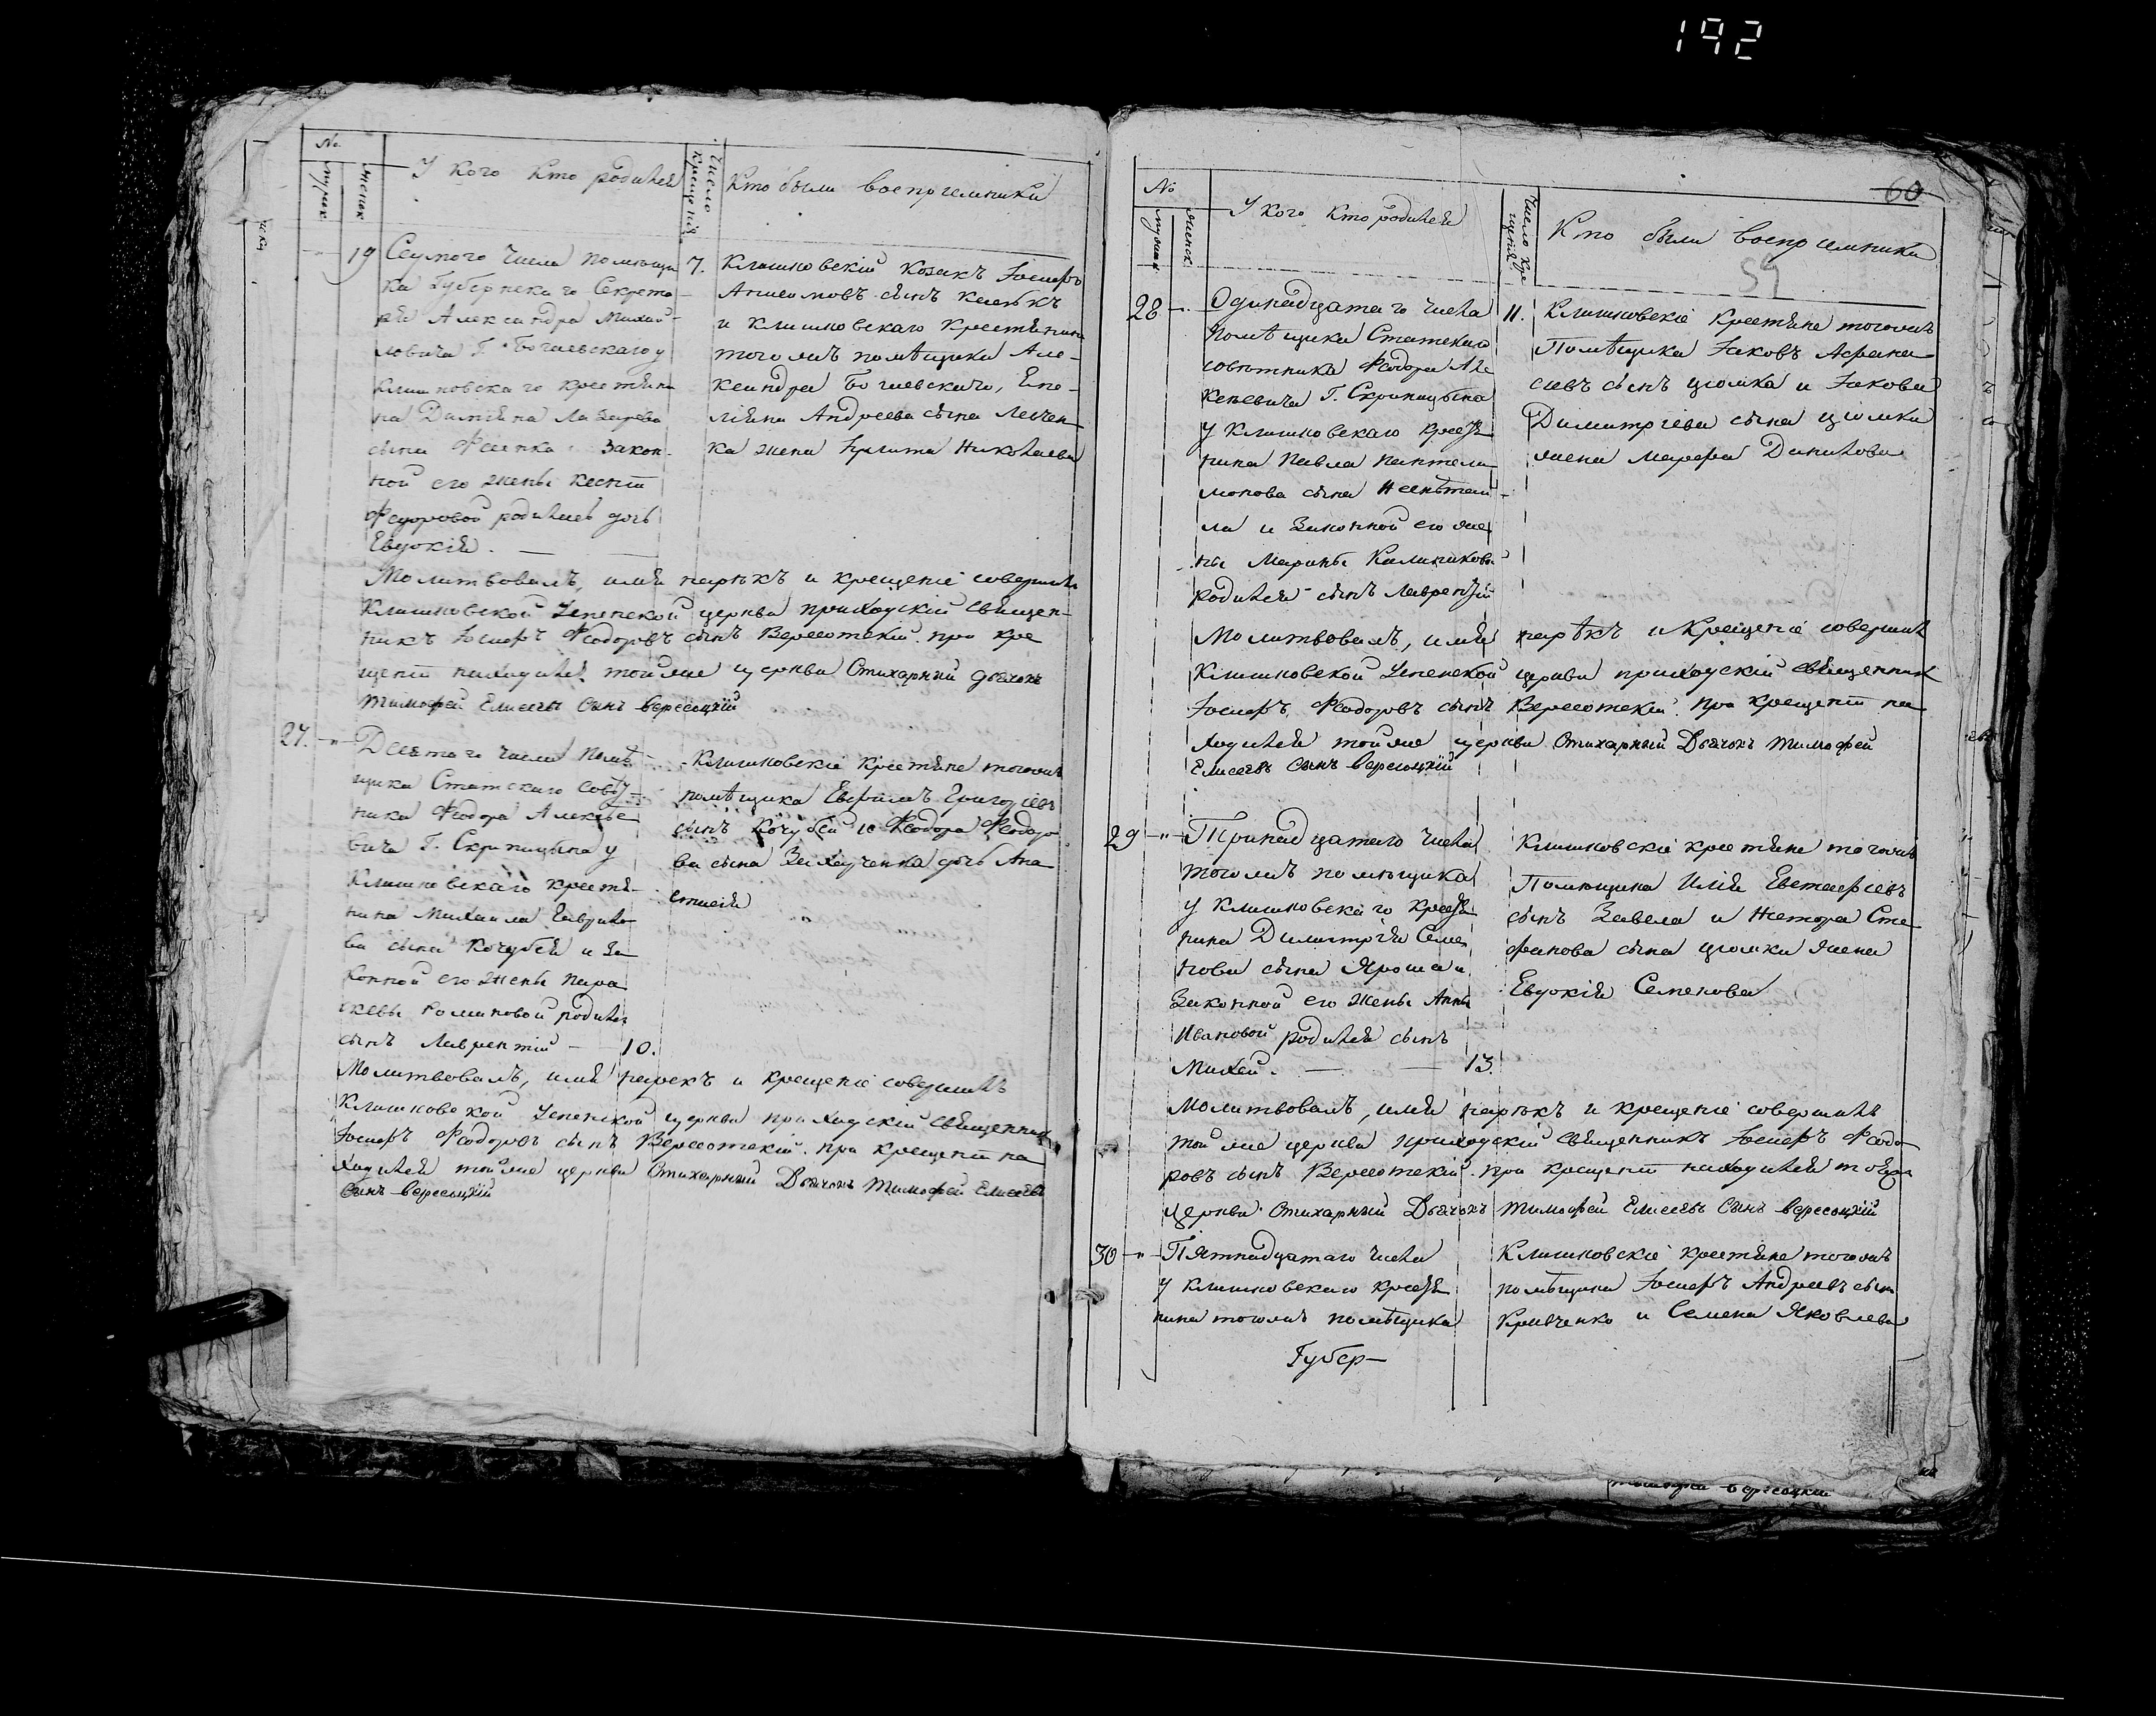 192
№
мужск
женск
У кого кто родился
Число
крещенія
Кто были воспріемники
19
Седмого числа помѣщи
ка Губернскаго Секрета
ря Александра Михай-
ловича Г. Богаевскаго у
Клишковскаго крестьяни
на Даміяна Лазарева
сына Закон-
ной его жены Ксеніи
Федоровой родилась дочь
Евдокія.
7.
Клишковскій козакъ Іосифъ
сынъ
и клишковскаго крестьянина
того жъ помѣщика Але-
ксандра Богаевскаго, Еме-
ліяна Андреева сына Левчен
ка жена Николаева
Молитвовалъ, имя нарекъ и крещеніе совершилъ
Клишковской Успенской церкви приходскій священ-
никъ Іосифъ Феодоровъ сынъ Вересотскій. при кре
щеніи находился той же церкви Стихарный дьячокъ
Тимофей Елисеевъ Сынъ Вересоцкій
27.
Девятого числа помѣ
щика Статскаго Совѣт
ника Феодора Алексѣе
вича Г. Скрипицына у
Клишковскаго крестья-
нина Михаила Гаврило
ва сына Кочубея и за
конной его жены Пара
скевы Фоминовой родился
сынъ Лаврентій — 10.
Клишковскіе крестьяне того жъ
помѣщика Евфимъ Григоріевъ
сынъ Кочубей и Феодора Феодоро
ва сына дочь Ана
стасія
Молитвовалъ, имя нарекъ и крещеніе совершилъ
Клишковской Успенской церкви приходскій священникъ
Іосифъ Феодоровъ сынъ Вересотскій. при крещеніи на
ходился той же церкви Стихарный Дьячокъ Тимофей Елисеевъ
Сынъ Вересоцкій
60
59
№
мужеск
женск
У кого кто родился
Число кре
щенія
Кто были воспріемники
28
Одинадцатаго числа
Помѣщика Статскаго
совѣтника Феодора Але
ксѣевича Г. Скрипицына
у Клишковскаго крестья
нина Павла Пантелей
монова сына
ла и Законной его же
ны Марины Калиниковой
родился сынъ Лаврентій
11.
Клишковскіе крестьяне того жъ
Помѣщика Іаковъ Афана
сіевъ сынъ Цюмка и Іакова
Димитріева сына Цюмки
жена Марфа Данилова
Молитвовалъ, имя нарѣкъ и Крещеніе совершилъ
Клишковской Успенской церкви приходскій священникъ
Іосифъ Феодоровъ сынъ Вересотскій. При крещеніи на
ходился той же церкви Стихарный Дьячокъ Тимофей
Елисеевъ Сынъ Вересоцкій
29
Тринадцатаго числа
того жъ помѣщика
у Клишковскаго крестья
нина Димитрія Семе
нова сына Яроша и
Законной его жены Анны
Ивановой родился сынъ
Михей. — 13.
Клишковскіе крестьяне того жъ
Помѣщика Илія Евстафіевъ
сынъ Завела и Нестора Сте
фанова сына Цюмки жена
Евдокія Семенова
Молитвовалъ, имя нарѣкъ и крещеніе совершилъ
той же церкви приходскій священникъ Іосифъ Феодо
ровъ сынъ Вересотскій. при крещеніи находился той же
церкви Стихарный Дьячокъ Тимофей Елисеевъ Сынъ Вересоцкій
30
Пятнадцатаго числа
у Клишковскаго крестья
нина того жъ помѣщика
Губер-
Клишковскіе крестьяне того жъ
помѣщика Іосифъ Андреевъ сынъ
Кривченко и Семена Яковлева
Тимофей Вересоцкій